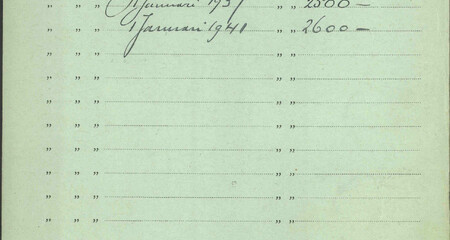 " " " 1 Januari " " 2500 —
" " " 1 Januari 1941 " " 2600 —
" " " " "
" " " " "
" " " " "
" " " " "
" " " " "
" " " " "
" " " " "
" " " " "